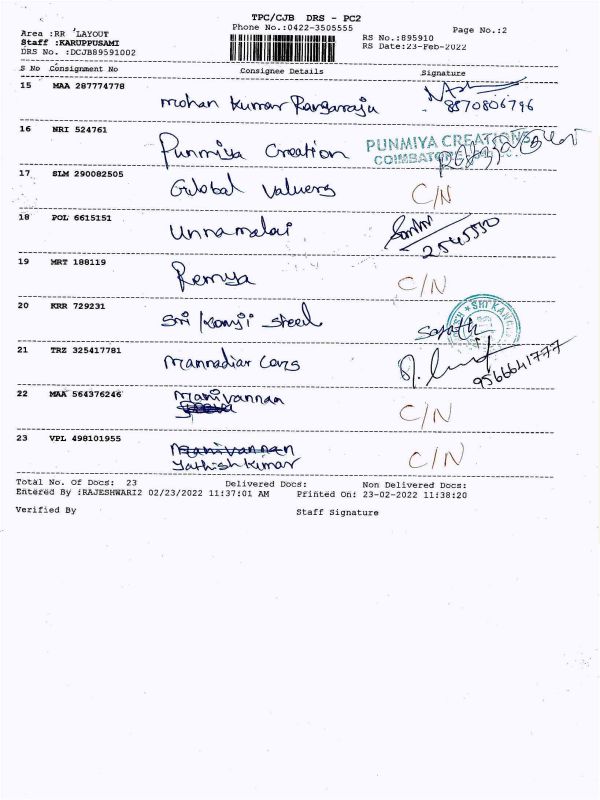 TPC/CJB DRS - PC2
Phone No.:0422-3505555
Page No.:2
Area :RR LAYOUT
Staff :KARUPPUSAMI
DRS No. :DCJB89591002
RS No.:895910
RS Date:23-Feb-2022
S No Consignment No Consignee Details Signature
15 MAA 287774778 Mohan Kumar Rangarraju 8570806796
16 NRI 524761 Punmiya Creation PUNMIYA CREATIONS
17 SLM 290082505 Global Valuers C/N
18 POL 6615151 Unnamalai
19 MRT 188119 Remya C/N
20 KRR 729231 Sri Kamji Steel
21 TRZ 325417781 Mannadiar Cars 9566641777
22 MAA 564376246 Manivannan C/N
23 VPL 498101955 Manivannan C/N
Jathish Kumar
Total No. Of Docs: 23 Delivered Docs: Non Delivered Docs:
Entered By :RAJESHWARI2 02/23/2022 11:37:01 AM Printed On: 23-02-2022 11:38:20
Verified By Staff Signature